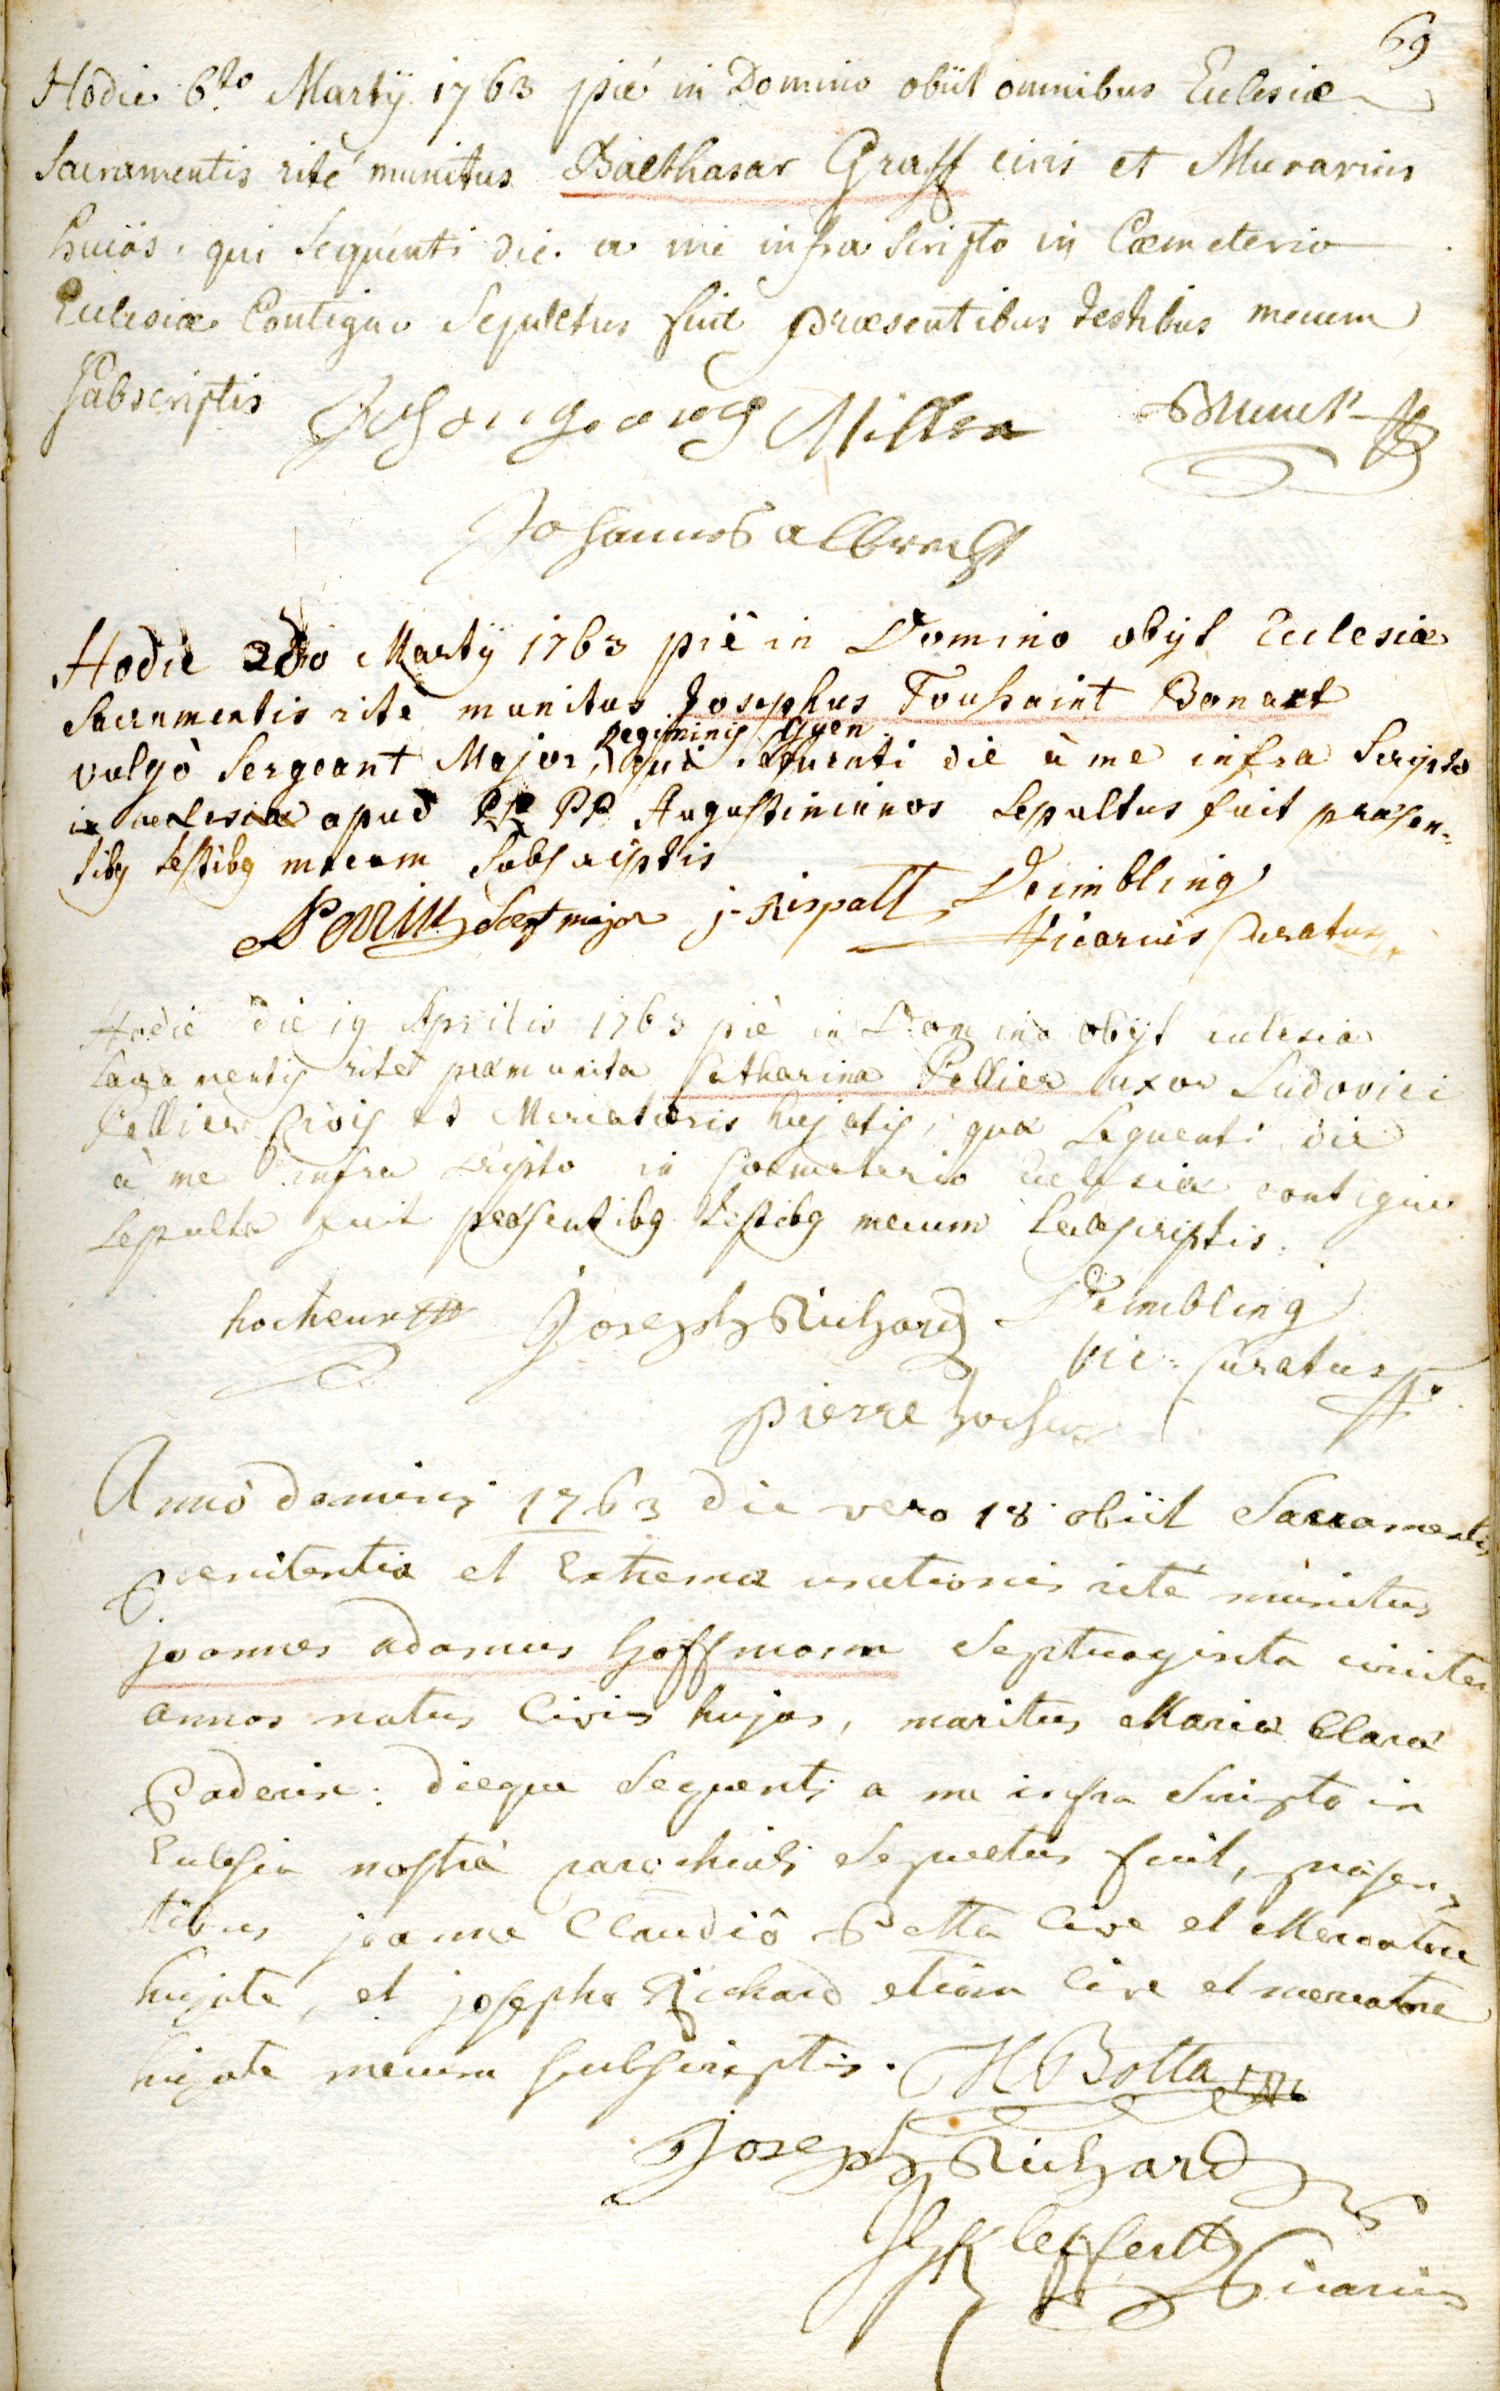 69
Hodie 6to Martÿ 1763 piè in Domino obiit omnibus Eclesiæ
Sacramentis ritè munitus Balthasar Graff civis et Murarius
huiàs, qui sequenti die a me infra scripto in Cœmeterio
Eclesiæ Contiguo Sepultus fuit præsentibus testibus mecum
subscriptis Miller Brunck
Johannes albrecht
Hodie Martÿ 1763 piè in Domino obÿt Ecclesiæ
Sacramentis ritè munitus Josephus Toussaint Bonart
Regiminis
vulgò Sergeant Major, qui sequenti die à me infra Scripto
in eclesia apud PP Augustinianos Sepultus fuit præsen=
tibq testibq mecum Subscriptis
Perrin major j. Rispall Deimbling
Vicarius Curatus
Hodie die 19 Aprilis 1763 piè in Domino obÿt eclesiæ
Sacramentis ritè præmunita Catharina Pellier uxor Ludovici
Pellier Civis et Mercatoris hujatis, quæ Sequenti die
à me infra scripto in Coemeterio Eclesiæ contiguo
Sepulta fuit præsentibq testibq mecum Subscriptis.
Joseph Richard Deimbling
Vic: Curatus
pierre
Anno domini 1763 die vero 18 obiit Sacramentis
Pœnitentiæ et Extremæ unctionis ritè munitus
joannes adamus hoffmann Septuaginta circiter
annos natus Civis hujas, maritus Mariæ Claræ
diequæ Sequenti a me infra Scripto in
Eclesia nostrà parochiali Sepultus fuit, præsen=
tibus joanne Claudiô Botta Cive et Mercatore
hujate, et josepho Richard etiam Cive et mercatore
hujate mecum subscriptis. Botta
Joseph Richard
Vicarius